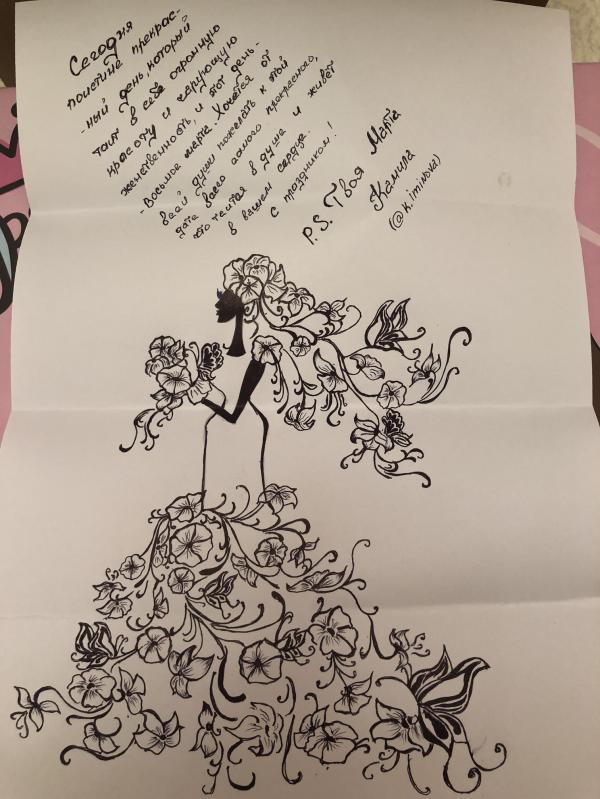 Сегодня
поистине прекрас-
-ный день, который
таит в себе огромную
красоту и чарующую
женственность, и этот день -
- Восьмое марта. Хочется от
всей души пожелать к этой
дате всего самого прекрасного,
что теится в душе и живёт
в вашем сердце.
С праздником!
P.S. Твоя Марта
Камила
(@k.iminova)